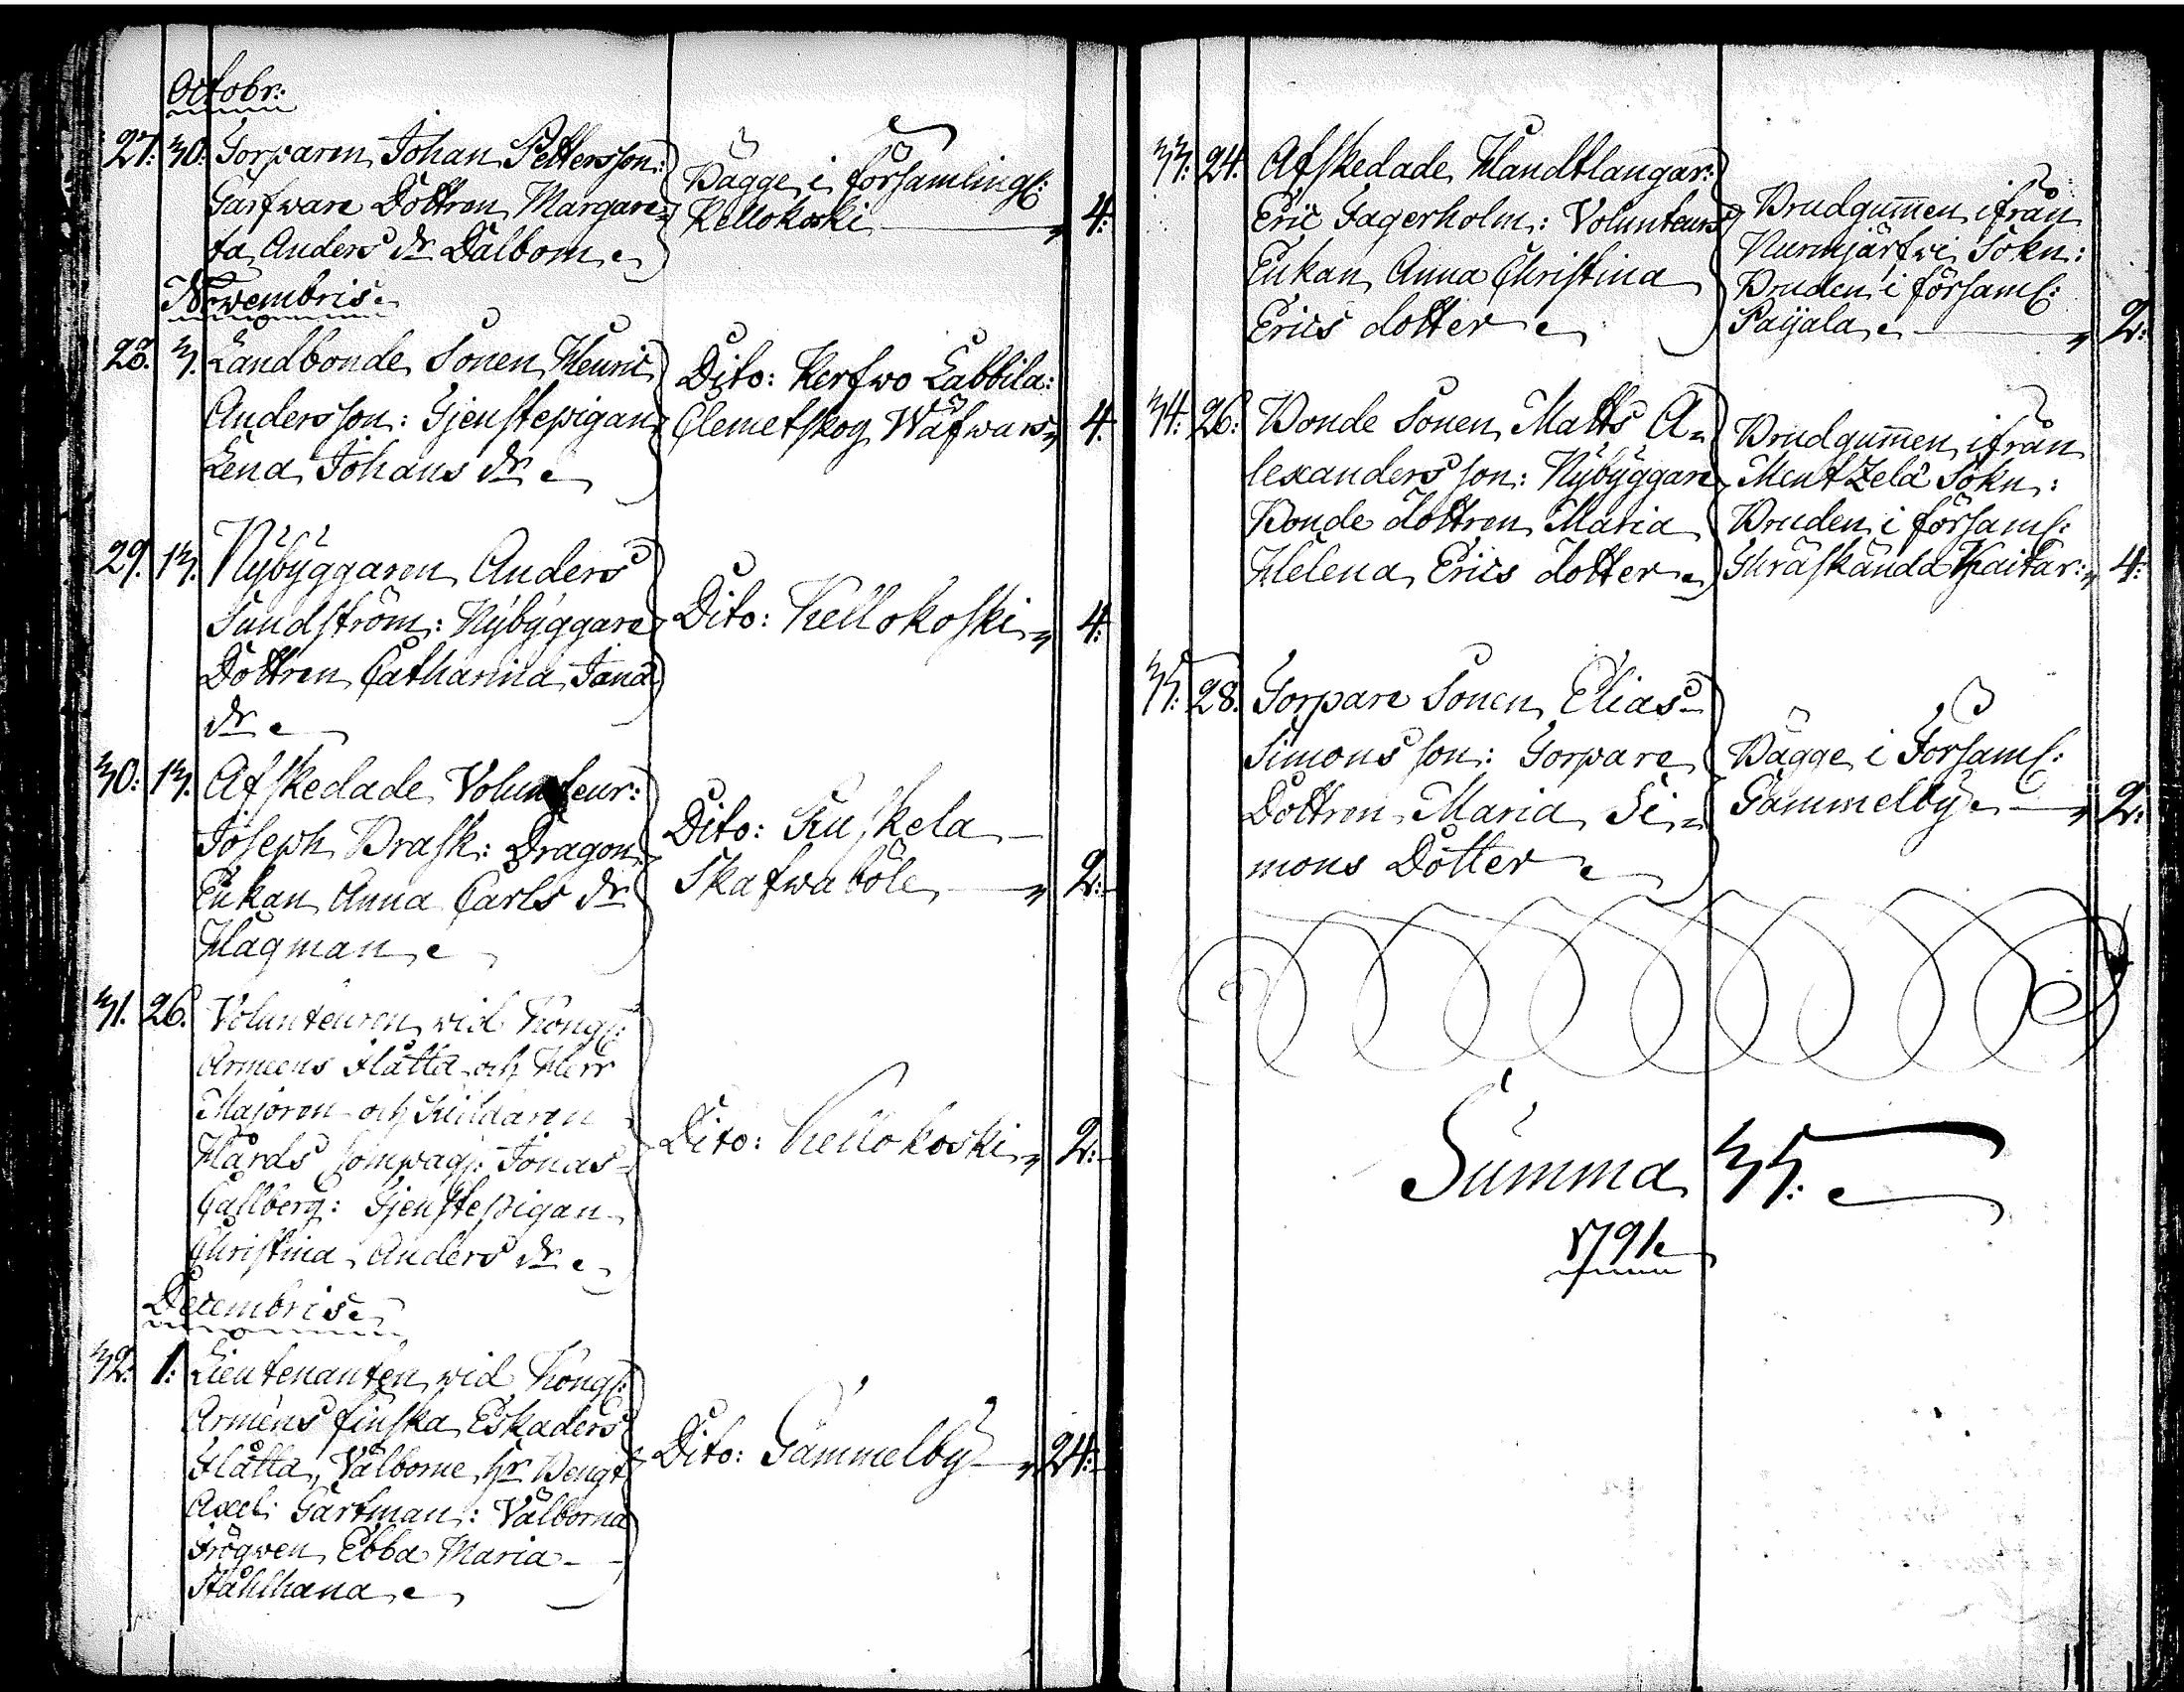 Octobr:
27: 30: Torparen Johan Pettersson:
Garfware Dottren Margare=
ta Anders dr Dalbom
Bägge i församlingl:
Kellokoski 4:
Novembris
28. 3. Landbonde Sonen Henric
Andersson: Tjenstepigan
Lena Johans dr
Dito: Kerfwo Labbila:
Clemetskog Wäfwars 4.
29. 13. Nybyggaren Anders
Sundström: Nybyggare
Dottren Catharina Jans
dr
Dito: Kellokoski 4:
30: 13. Afskedade Volunteur:
Joseph Brask: Dragon
Enkan Anna Carls dr
Hagman
Dito: Kuskela
Skafwaböle 2:
31. 26. Volunteuren wid Kongl:
Armeens Flätta och Herr
Majoren och Riddaren
Hårds Compag: Jonas
Callberg: Tjenstepigan
Christina Anders dr
Dito: Kellokoski 2:
Decembris
32. 1: Lieutenanten wid Kongl:
Armens finska Eskaders
Flåtta, Välborne Hr Bengt
Axel Gartman: Välborna
Fröqven Ebba Maria
Stålhana
Dito: Gammelby 24:
33: 24. Afskedade Handtlangar:
Eric Fagerholm: Volunteurs
Enkan Anna Christina
Erics dotter
Brudgum̅en ifrån
Nurmjärfwi Sokn:
Bruden i församl:
Paijala 2:
34: 26: Bonde Sonen Matts A=
lexandersson: Nybyggare
Bonde dottren Maria
Helena Erics dotter
Brudgum̅en ifrån
Mentzelä Sokn:
Bruden i församl:
Träskända Kaitar: 4:
35: 28. Torpare Sonen Elias
Simonsson: Torpare
Dottren Maria Si=
mons Dotter
Bägge i Forsaml:
Gammelby 2:
Summa 35.
1791